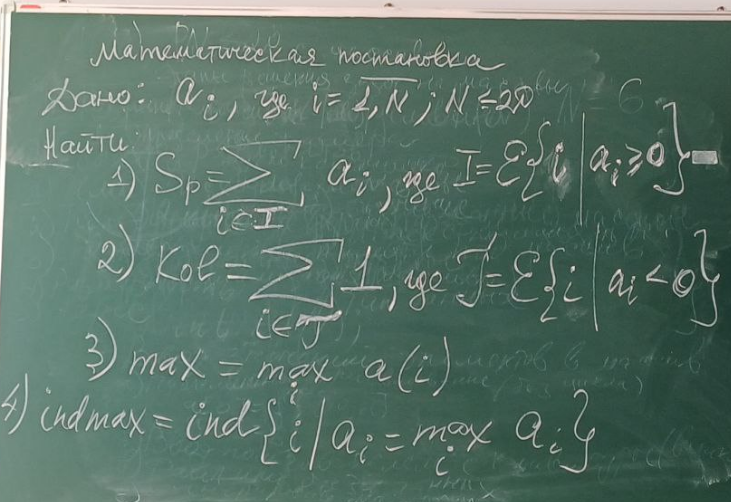 Математическая постановка
Дано: aᵢ, где i = 1,N; N = 20
Найти:
1) Sp = ∑ aᵢ, где I = Ɛ{i | aᵢ ≥ 0}
i∈I
2) Ков = ∑ 1, где J = Ɛ{i | aᵢ < 0}
i∈J
3) max = max a(i)
i
4) indmax = ind{i | aᵢ = max aᵢ}
i